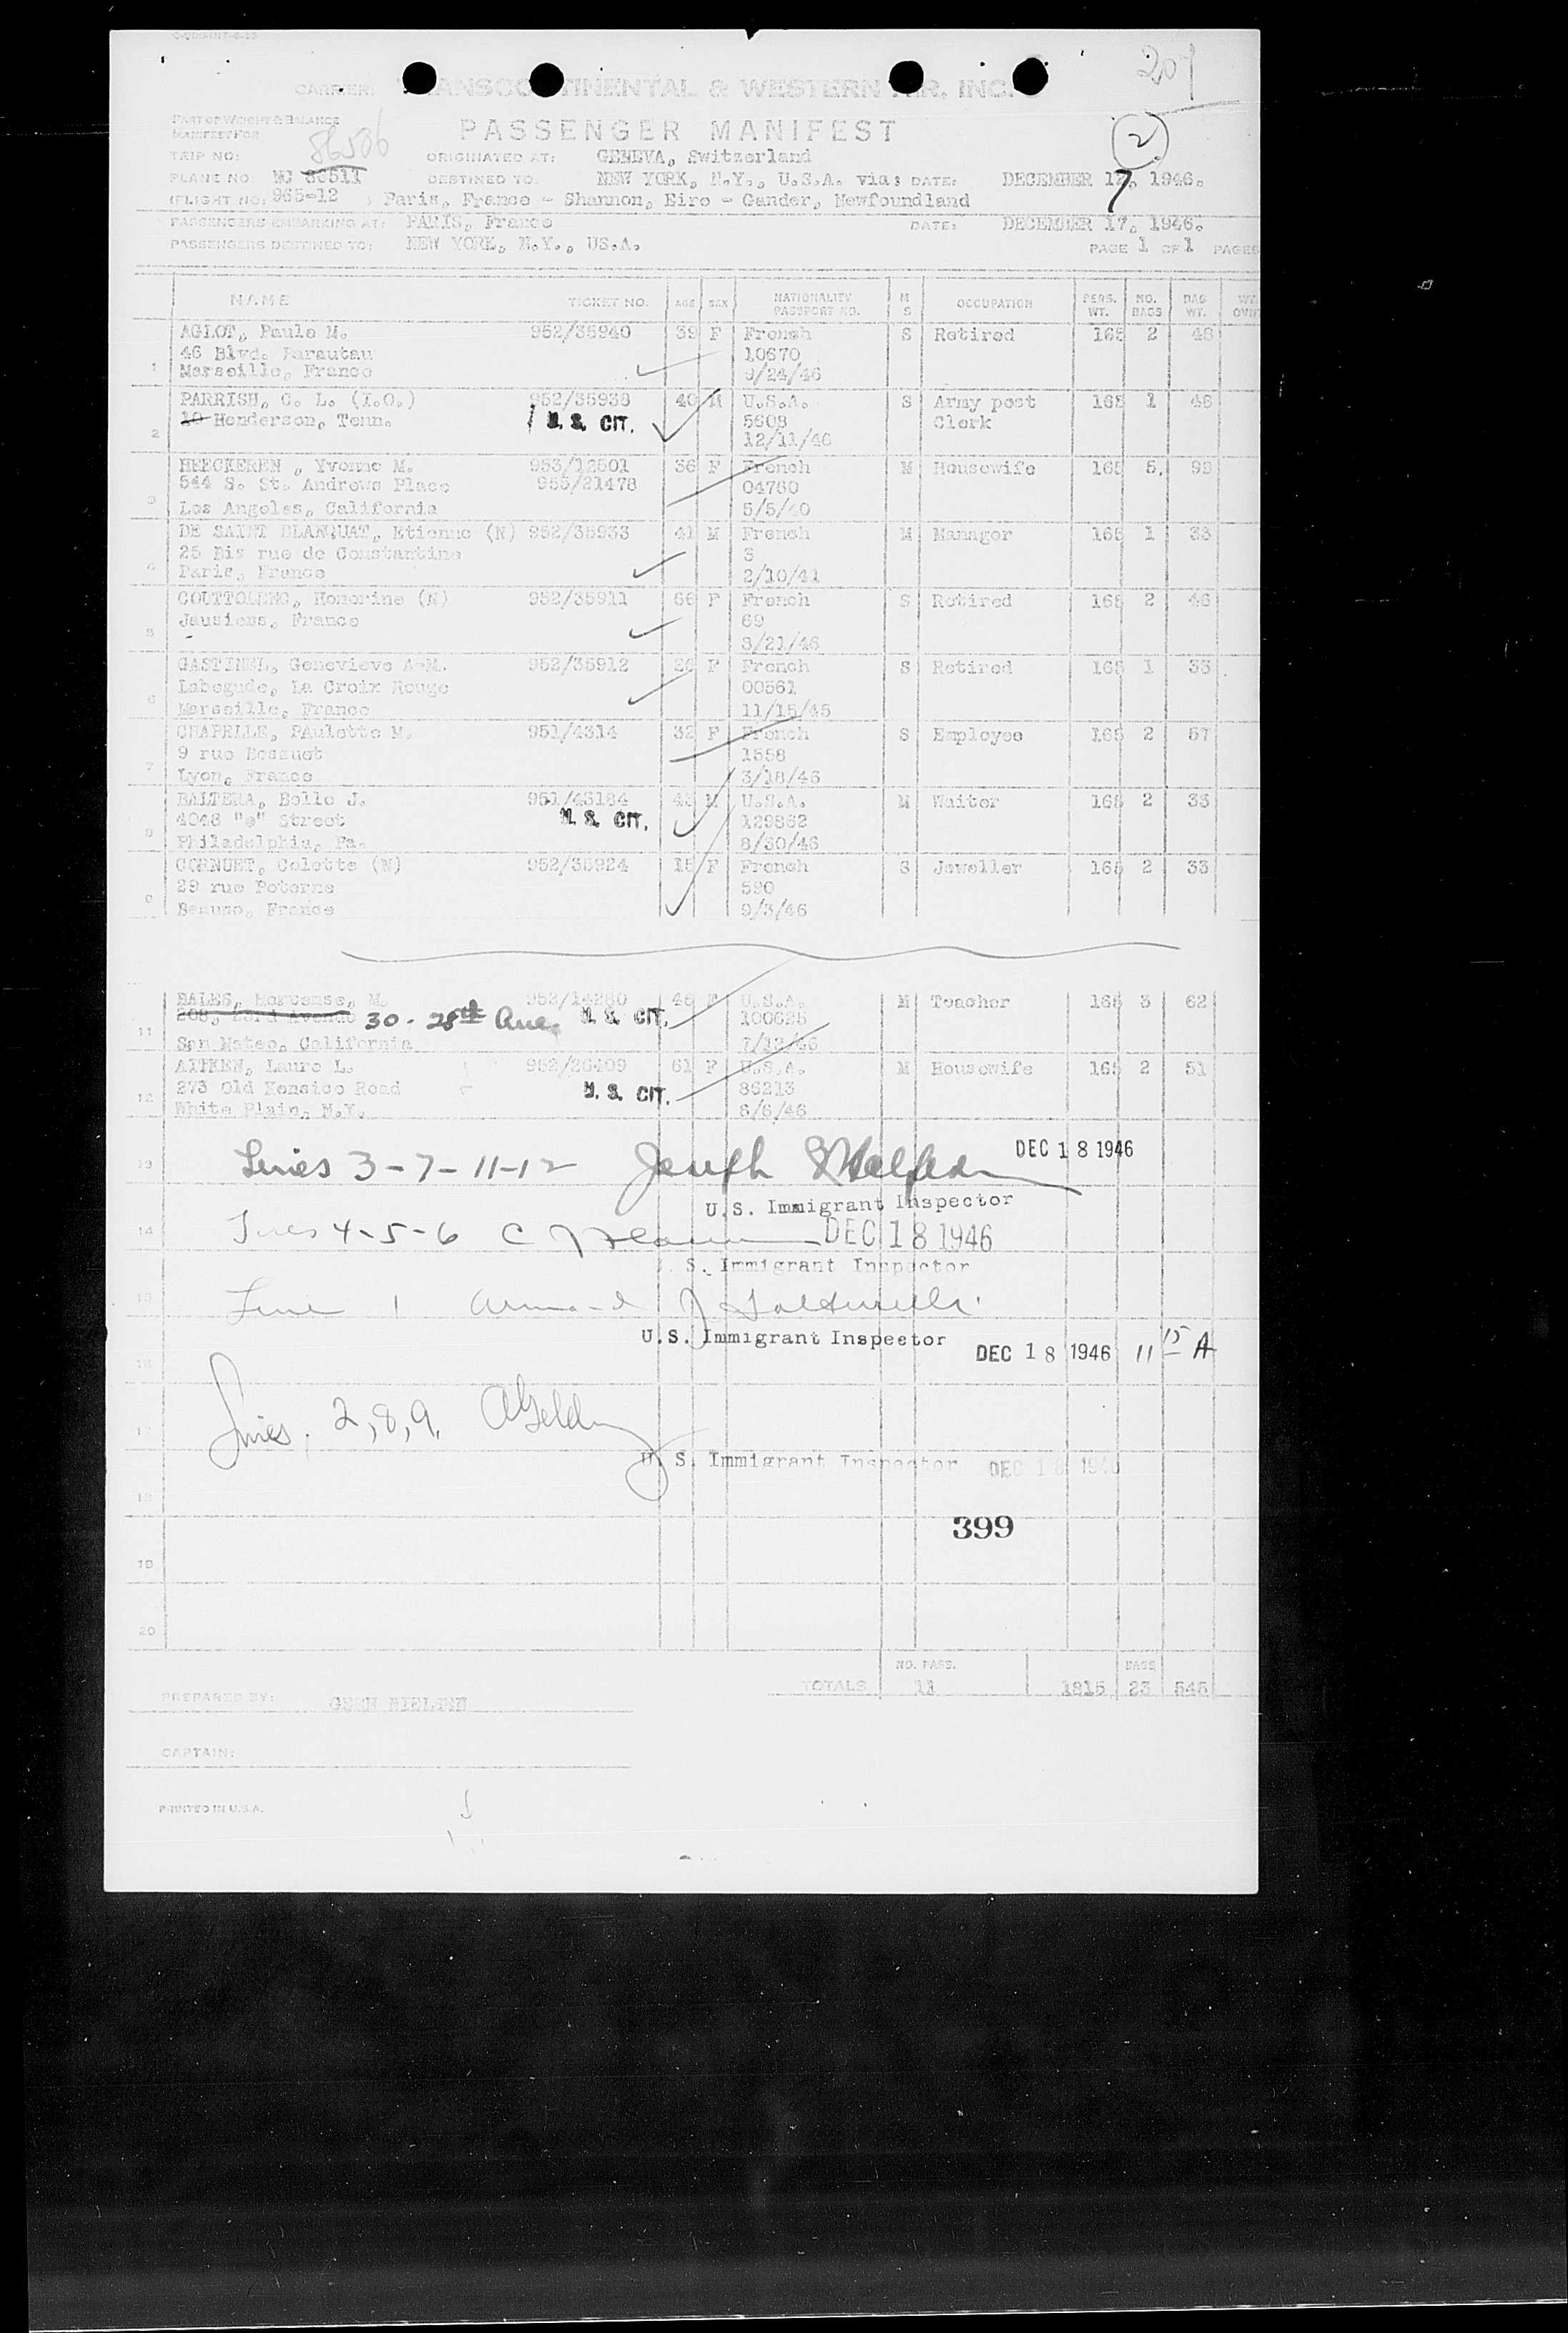 207
CARRIER: TRANSCONTINENTAL & WESTERN AIR, INC.
PART OF WEIGHT & BALANCE
MANIFEST FOR
PASSENGER MANIFEST
2
TRIP NO: 86506 ORIGINATED AT: GENEVA, Switzerland
PLANE NO. NC 86511 DESTINED TO: NEW YORK, N.Y., U.S.A. via: DATE: DECEMBER 17, 1946.
(FLIGHT NO: 965-12 , Paris, France - Shannon, Eire - Gander, Newfoundland
PASSENGERS EMBARKING AT: PARIS, France DATE: DECEMBER 17, 1946.
PASSENGERS DESTINED TO: NEW YORK, N.Y., US.A. PAGE 1 OF 1 PAGES
NAME TICKET NO. AGE SEX NATIONALITY PASSPORT NO. M S OCCUPATION PERS. WT. NO. BAGS BAG WT.
AGLOT, Paule M. 952/35940 39 F French S Retired 165 2 48
46 Blvd. Parautau 10670
1 Marseille, France 9/24/46
PARRISH, C. L. (I.O.) 952/35938 40 M U.S.A. S Army post 165 1 48
10 Henderson, Tenn. U. S. CIT. 5608 Clerk
2 12/11/46
HEECKEREN , Yvonne M. 953/12501 36 F French M Housewife 165 5, 99
544 S. St. Andrews Place 955/21478 04760
3 Los Angeles, California 5/5/40
DE SAINT BLANQUAT, Etienne (N) 952/35933 41 M French M Manager 165 1 33
25 Bis rue de Constantine 3
4 Paris, France 2/10/41
Honorine (N) 952/35911 66 F French S Retired 165 2 46
Jausiers, France 69
5 8/21/46
GASTINEL, Genevieve A-M. 952/35912 26 F French S Retired 165 1 35
Labegude, La Croix Rouge 00561
6 Marseille, France 11/15/45
CHAPELLE, PAulette M. 951/4314 32 F French S Employee 165 2 57
9 rue Bossuet 1558
7 Lyon, France 3/18/46
BALTERA, Bello J. 951/43184 43 M U.S.A. M Waiter 165 2 33
4048 "e" Street U. S. CIT. 129862
8 Philadelphia, Pa. 8/30/46
CORNUET, Colette (N) 952/35924 15 F French S Jeweller 165 2 33
29 rue Poterne 590
9 Beaune, France 9/3/46
BALES, Hortense, M. 952/14280 46 F U.S.A. M Teacher 165 3 62
30 - 28th Ave. U. S. CIT. 100625
11 San Mateo, California 7/12/46
AITKEN, Laura L. 952/26409 61 F U.S.A. M Housewife 165 2 51
273 Old Kensico Road U. S. CIT. 86213
12 White Plain, N.Y. 6/6/46
13 Lines 3-7-11-12 Joseph DEC 18 1946
U.S. Immigrant Inspector
14 Lines 4-5-6 DEC 18 1946
S. Immigrant Inspector
15 Line 1 Armand J
U.S. Immigrant Inspector DEC 18 1946 11 15 A
17 Lines, 2,8,9.
U. S. Immigrant Inspector DEC 18 1946
18
399
19
20
NO. PASS. BAGS
TOTALS 11 1815 23 545
PREPARED BY: NIELSEN
CAPTAIN:
PRINTED IN U.S.A.